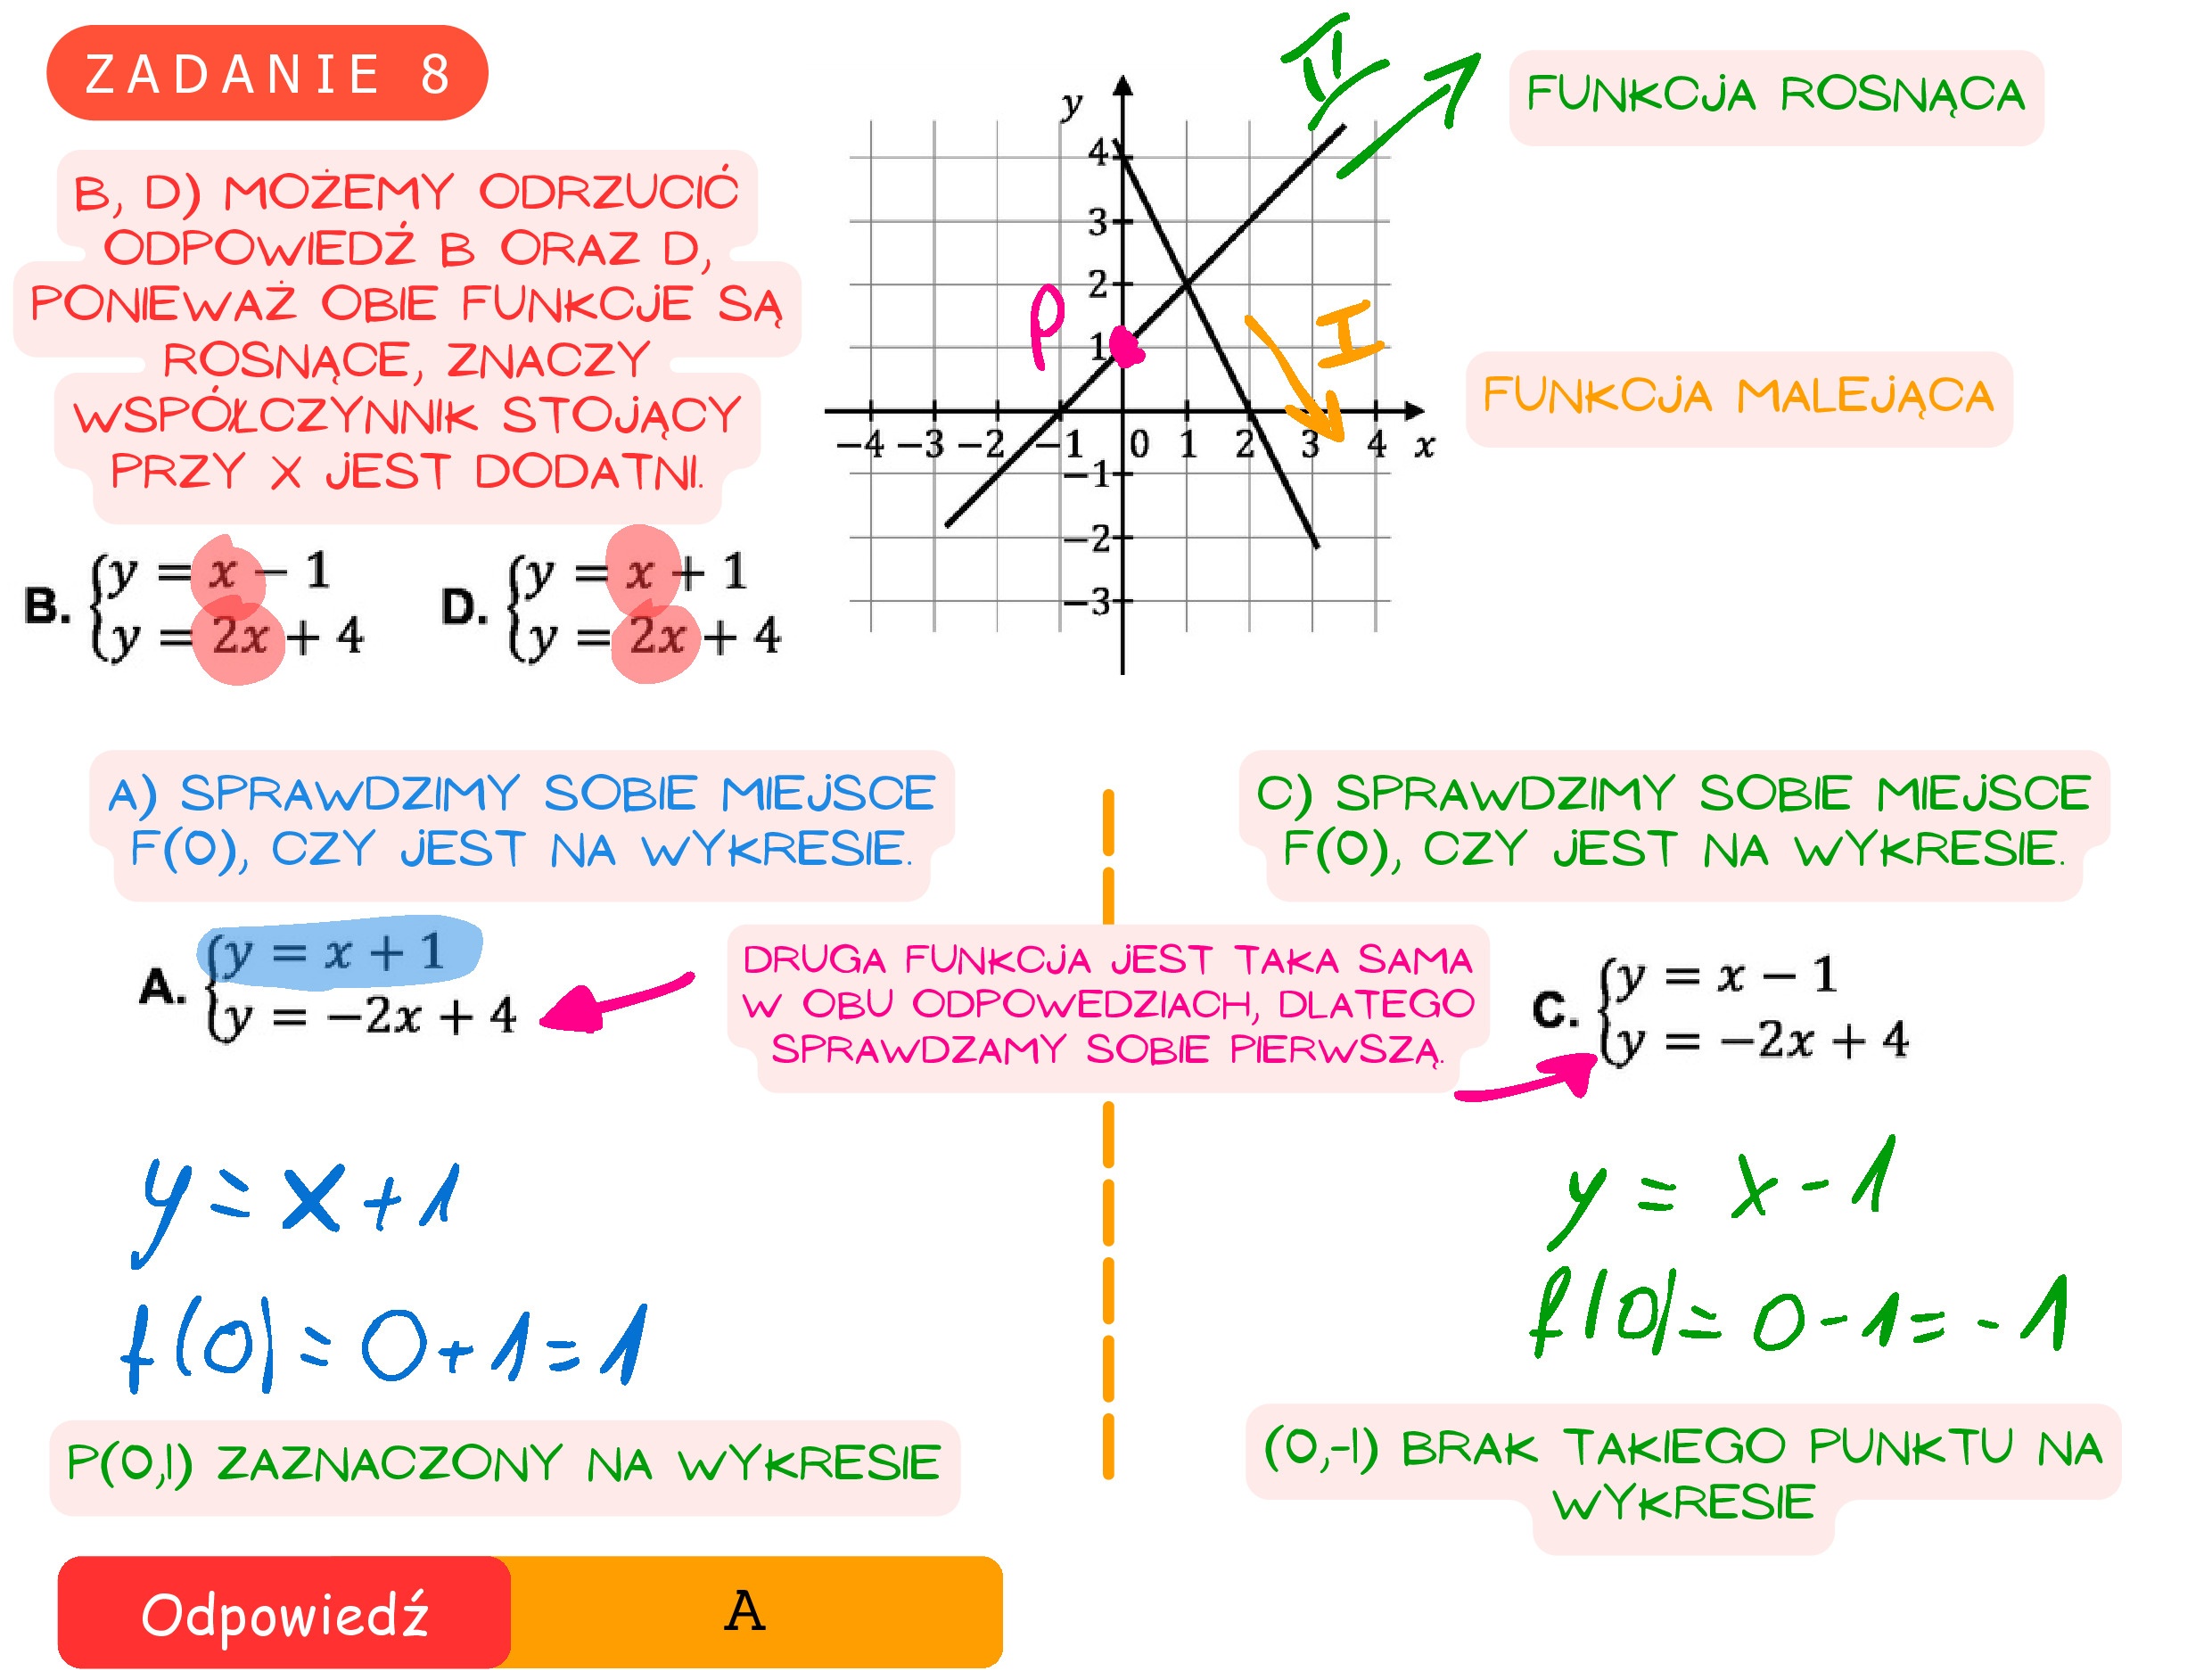 ZADANIE 8
B, D) MOŻEMY ODRZUCIĆ
ODPOWIEDŹ B ORAZ D,
PONIEWAŻ OBIE FUNKCJE SĄ
ROSNĄCE, ZNACZY
WSPÓŁCZYNNIK STOJĄCY
PRZY X JEST DODATNI.
B. {y = x − 1
y = 2x + 4
D. {y = x + 1
y = 2x + 4
y
4
3
2
1
−4 −3 −2 −1 0 1 2 3 4 x
−1
−2
−3
P
II
I
FUNKCJA ROSNĄCA
FUNKCJA MALEJĄCA
A) SPRAWDZIMY SOBIE MIEJSCE
F(0), CZY JEST NA WYKRESIE.
A. {y = x + 1
y = −2x + 4
DRUGA FUNKCJA JEST TAKA SAMA
W OBU ODPOWEDZIACH, DLATEGO
SPRAWDZAMY SOBIE PIERWSZĄ.
y = x + 1
f(0) = 0 + 1 = 1
P(0,1) ZAZNACZONY NA WYKRESIE
C) SPRAWDZIMY SOBIE MIEJSCE
F(0), CZY JEST NA WYKRESIE.
C. {y = x − 1
y = −2x + 4
y = x - 1
f(0) = 0 - 1 = - 1
(0,-1) BRAK TAKIEGO PUNKTU NA
WYKRESIE
Odpowiedź A